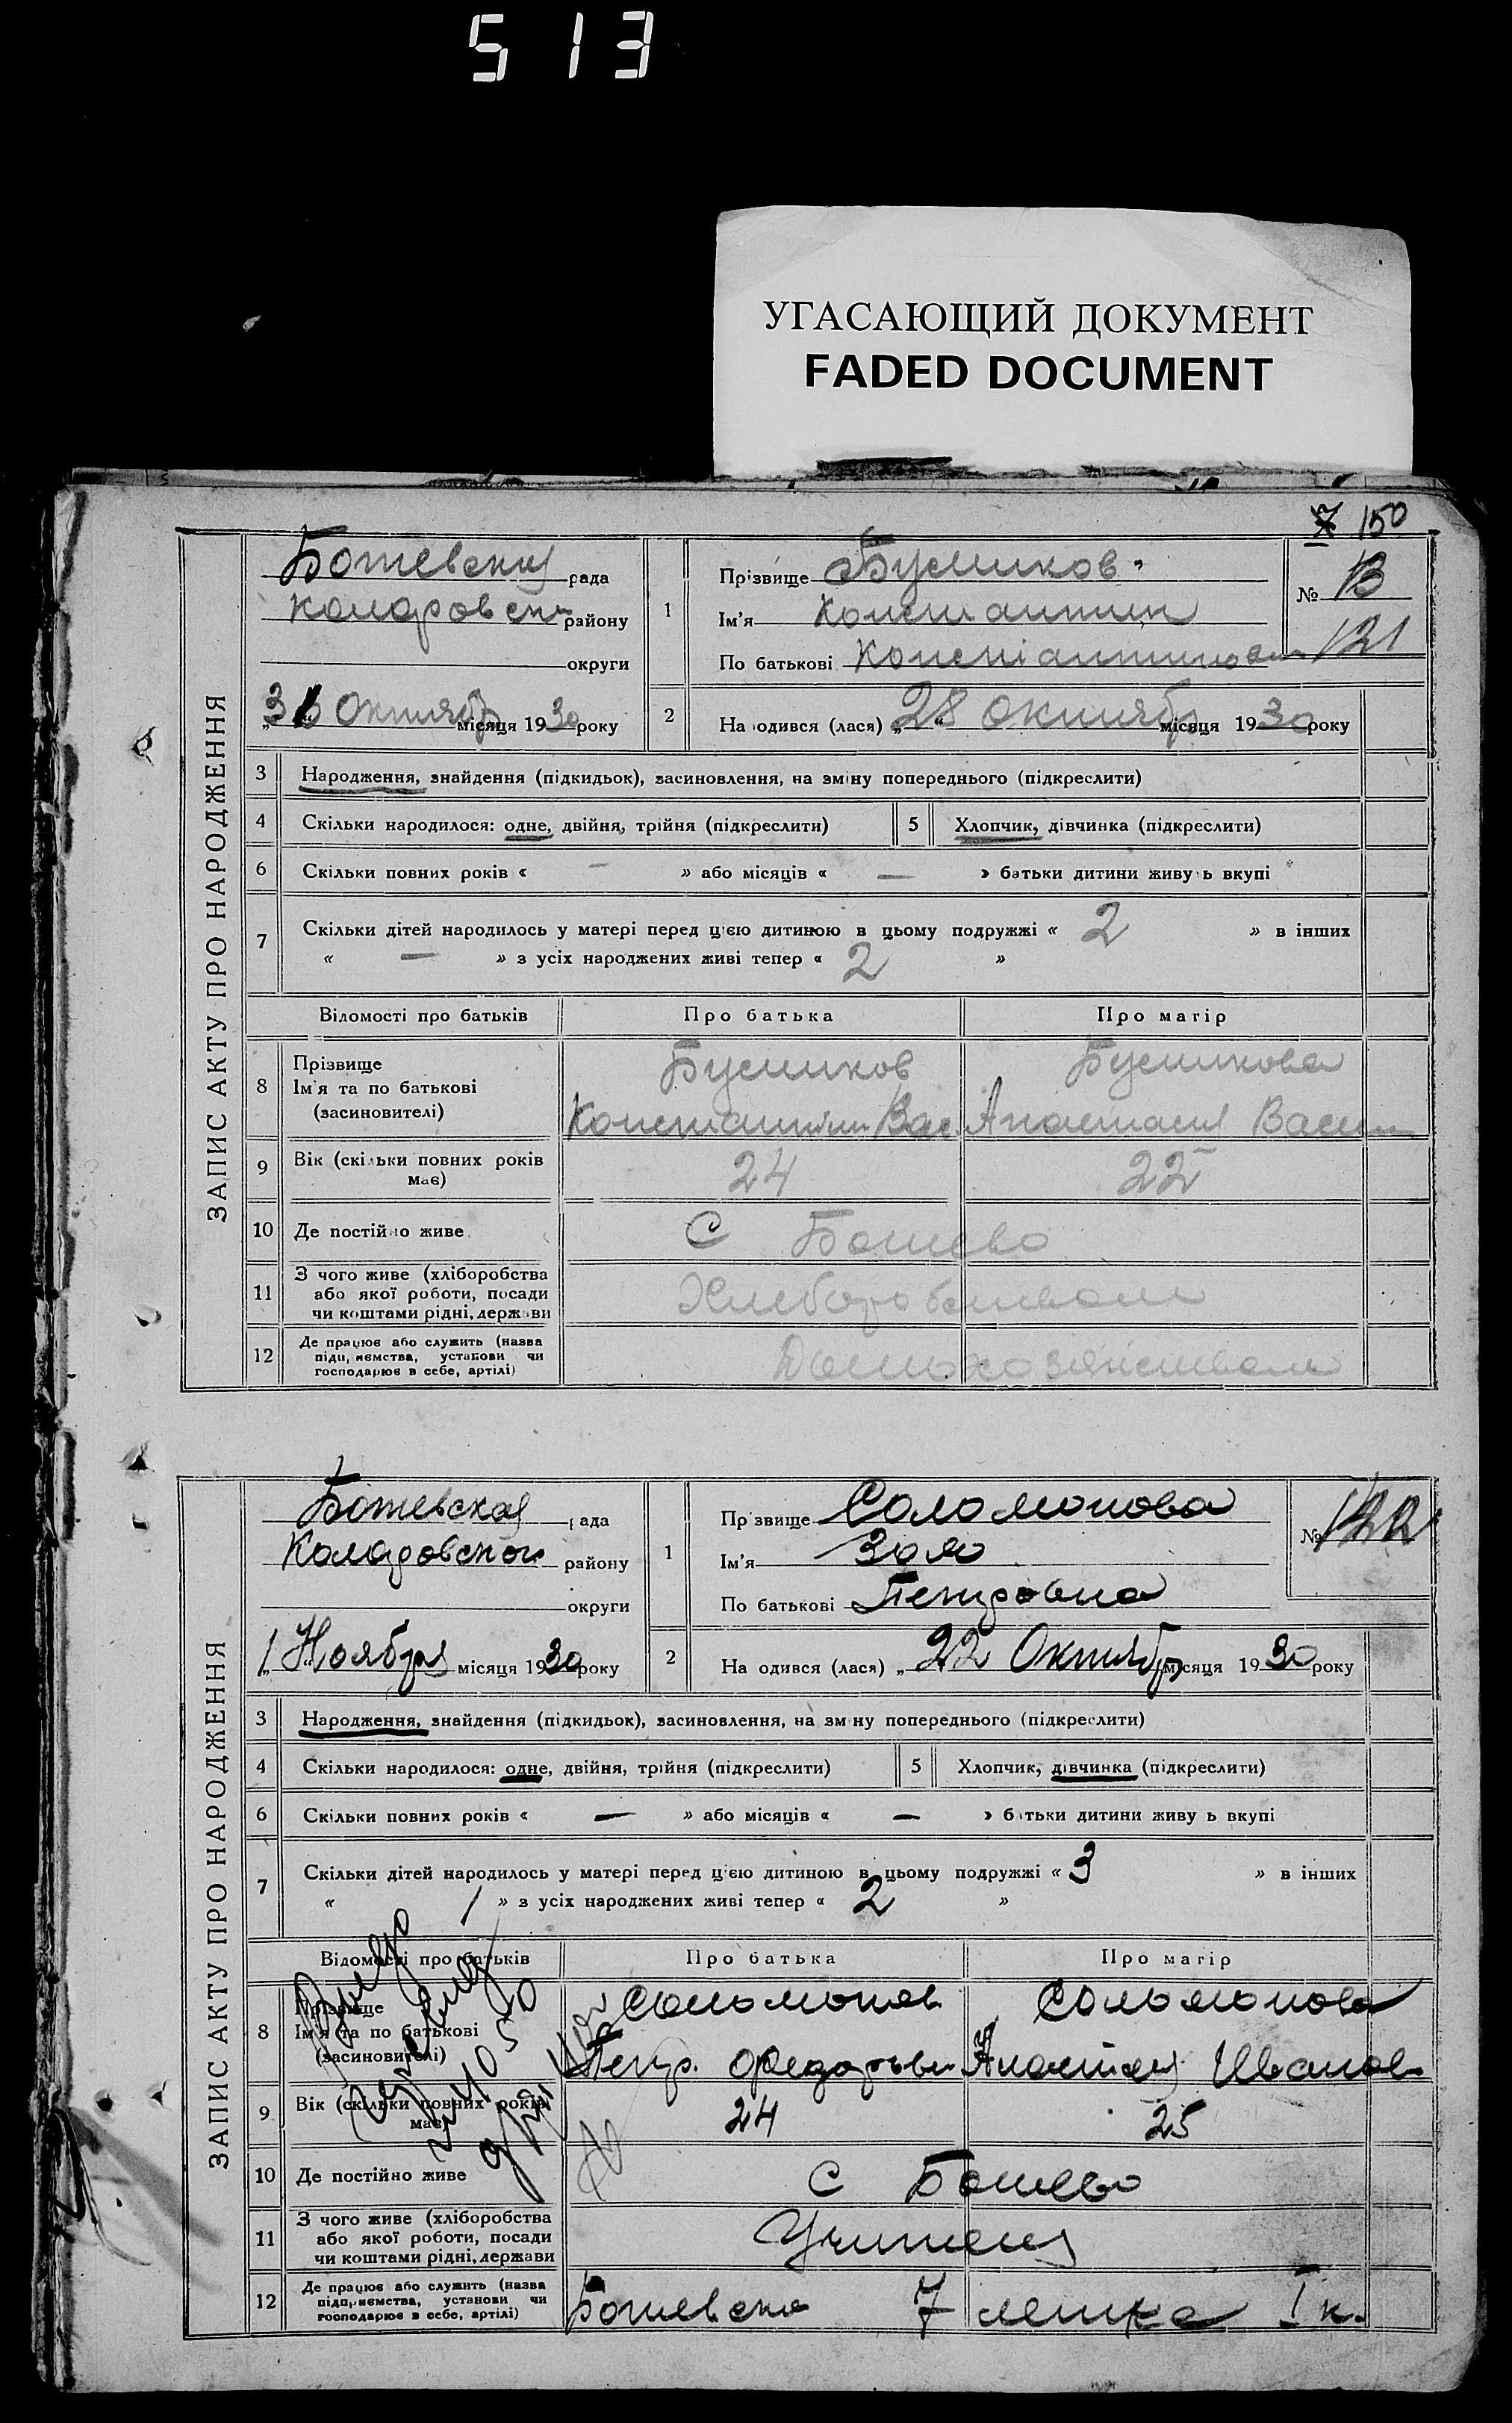 513
УГАСАЮЩИЙ ДОКУМЕНТ
FADED DOCUMENT
7 150
ЗАПИС АКТУ ПРО НАРОДЖЕННЯ
Ботевская рада
Коларовск району
округи
Октябр місяця 1930 року
1 Прізвище Бусликов
Ім'я Константин
По батькові Константинович
№ 121
2 Народився (лася) „28 Октябр місяця 1930 року
3 Народження, знайдення (підкидьок), засиновлення, на зміну попереднього (підкреслити)
4 Скільки народилося: одне, двійня, трійня (підкреслити) 5 Хлопчик, дівчинка (підкреслити)
6 Скільки повних років « — » або місяців « — » батьки дитини живуть вкупі
7 Скільки дітей народилось у матері перед цією дитиною в цьому подружжі « 2 » в інших
« — » з усіх народжених живі тепер « 2 »
Відомості про батьків Про батька Про матір
8 Прізвище
Ім'я та по батькові
(засиновителі)
Бусликов
Константин Вас
Бусликова
Анастасия Васил
9 Вік (скільки повних років має) 24 22
10 Де постійно живе С Ботево
11 З чого живе (хліборобства
або якої роботи, посади
чи коштами рідні, держави
Хлеборобством
12 Де працює або служить (назва
підприємства, установи чи
господарює в себе, артілі)
Домохозяйством
ЗАПИС АКТУ ПРО НАРОДЖЕННЯ
Ботевская рада
Коларовского району
округи
1 Ноября місяця 1930 року
1 Прізвище Соломонова
Ім'я Зоя
По батькові Петровна
№ 122
2 Народився (лася) „22 Октябр місяця 1930 року
3 Народження, знайдення (підкидьок), засиновлення, на зміну попереднього (підкреслити)
4 Скільки народилося: одне, двійня, трійня (підкреслити) 5 Хлопчик, дівчинка (підкреслити)
6 Скільки повних років « — » або місяців « — » батьки дитини живуть вкупі
7 Скільки дітей народилось у матері перед цією дитиною в цьому подружжі « 3 » в інших
« / » з усіх народжених живі тепер « 2 »
Відомості про батьків Про батька Про матір
8 Прізвище
Ім'я та по батькові
(засиновителі)
Соломонов
Петр Федорович
Соломонова
Анастасия Иванов
9 Вік (скільки повних років має) 24 25
10 Де постійно живе С Ботево
11 З чого живе (хліборобства
або якої роботи, посади
чи коштами рідні, держави
Учителя
12 Де працює або служить (назва
підприємства, установи чи
господарює в себе, артілі)
Ботевска 7 летка I к.